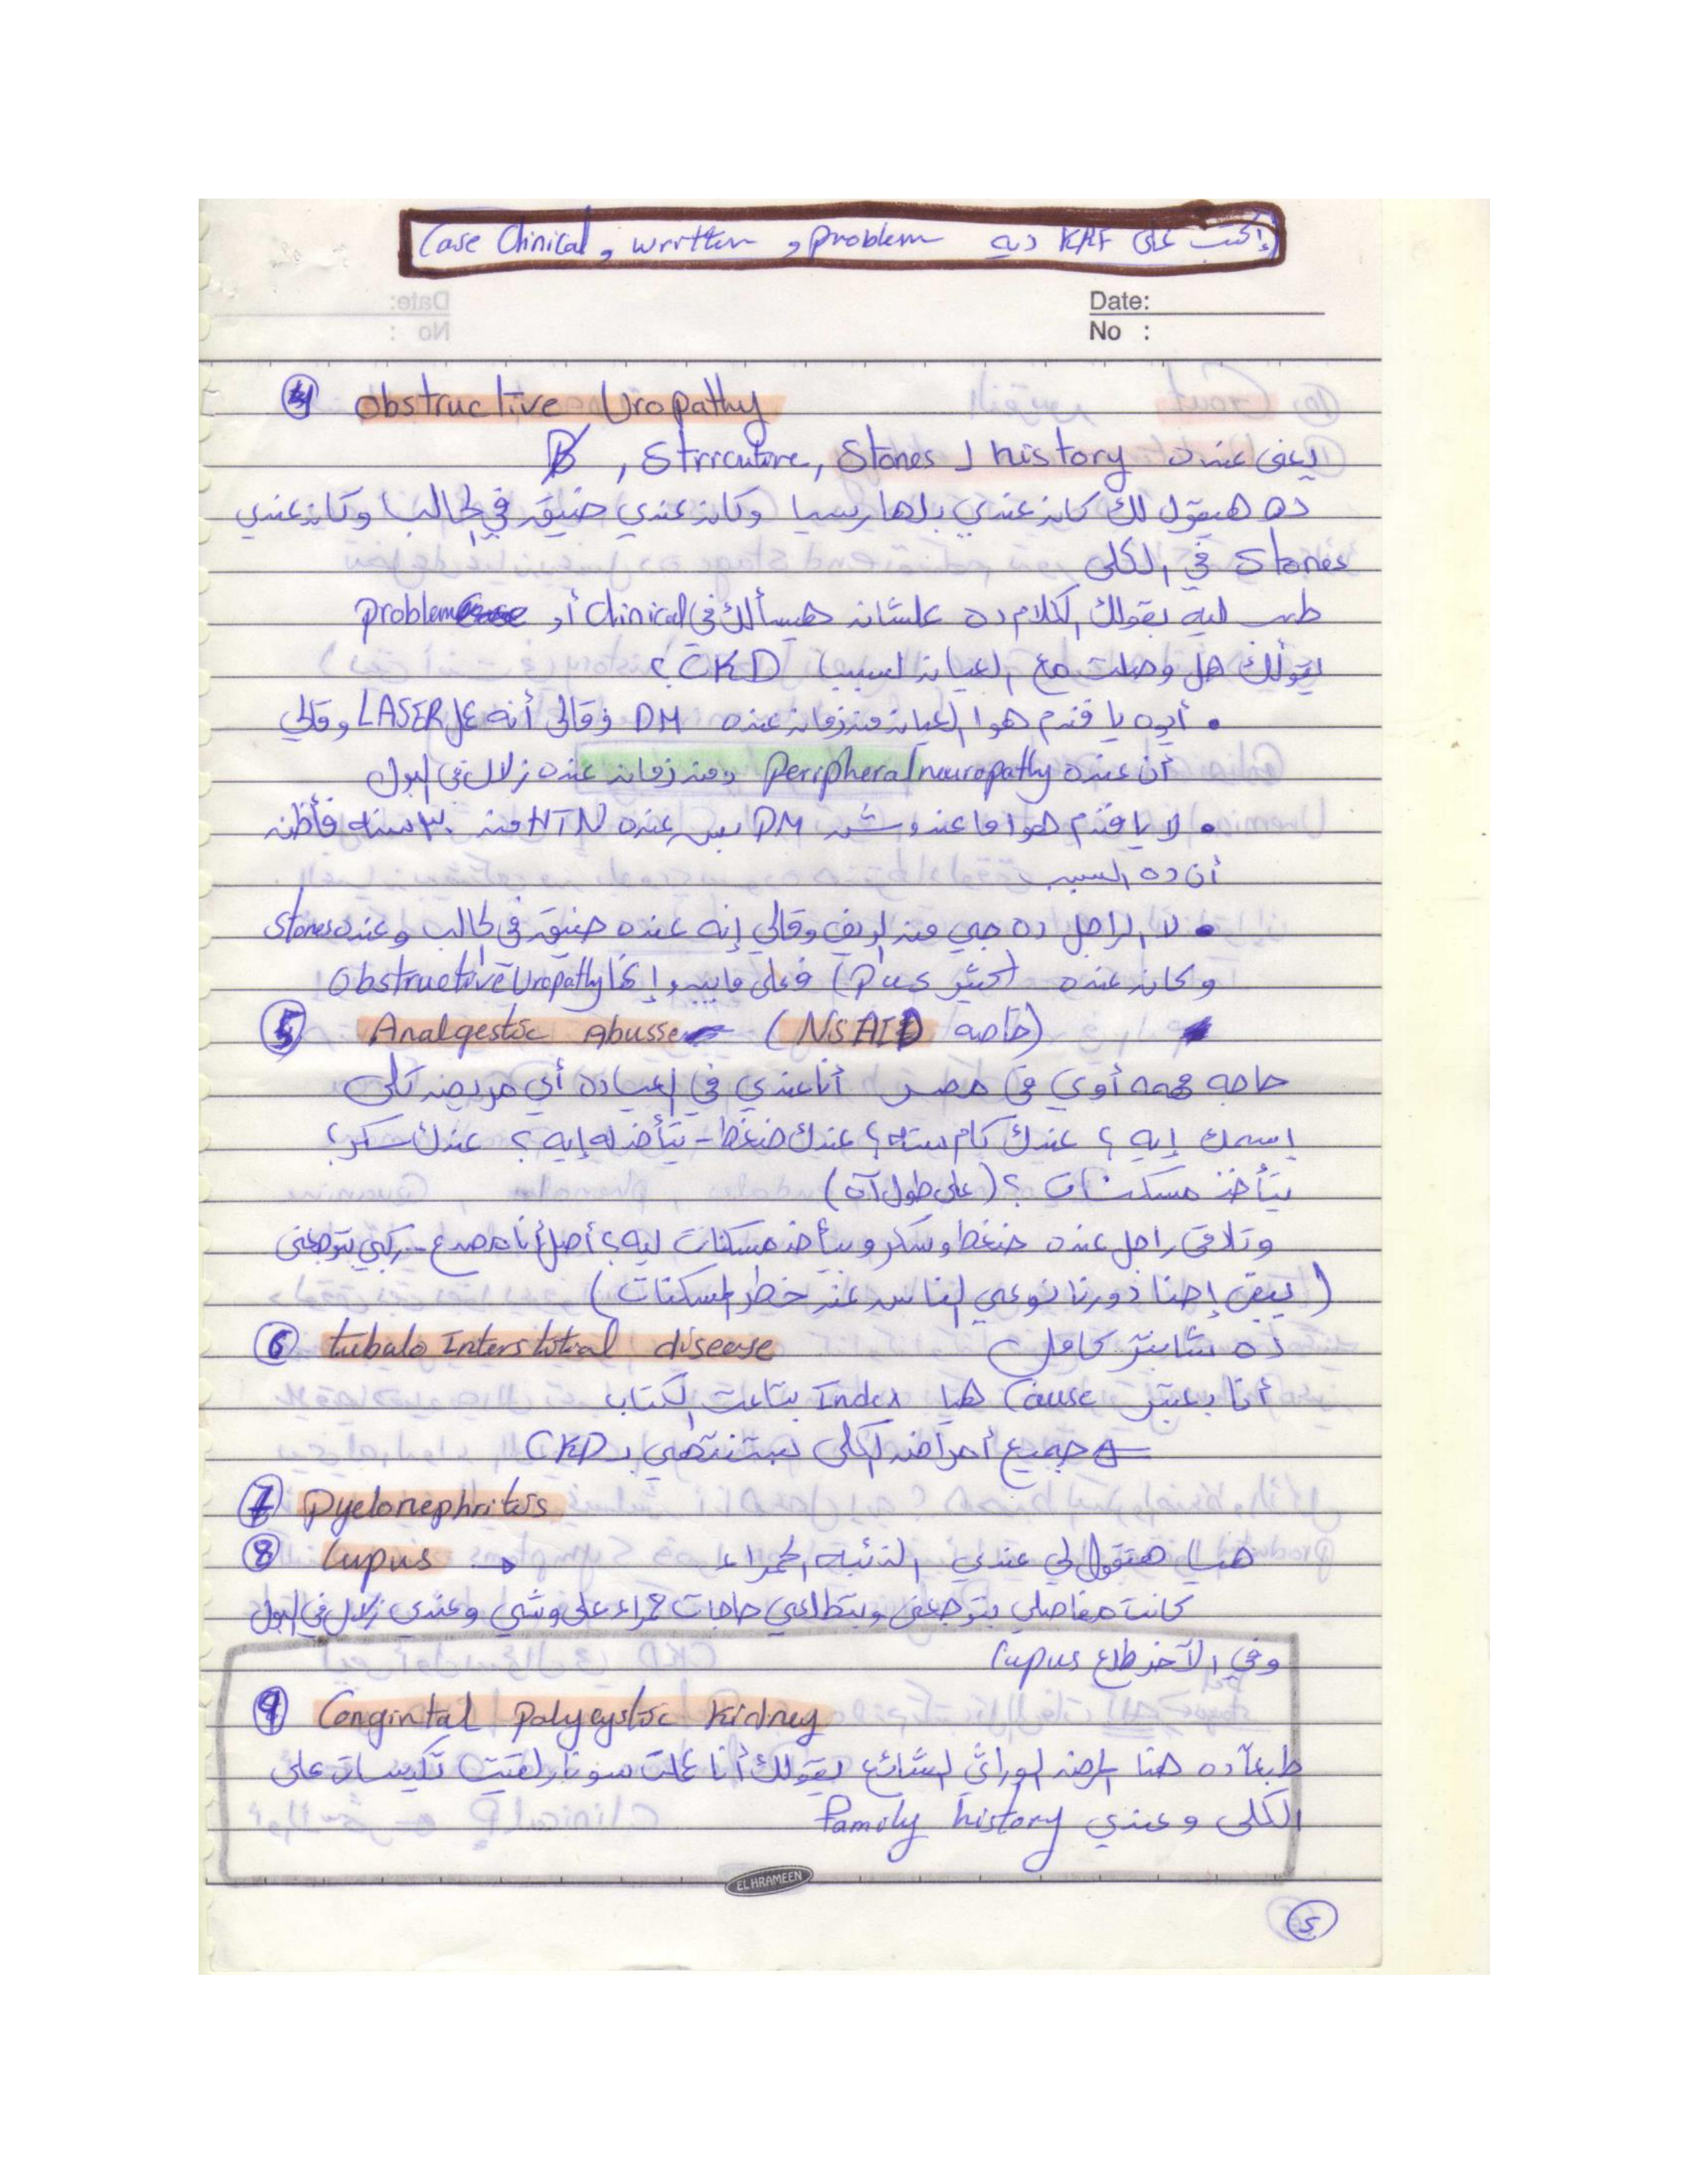 إكتب على KRF ديه problem , written , Case Clinical
Date:
No :
④ Obstructive Uropathy
يعني عنده history لـ Stones , Strricuture ,
ده هيقول لك كان عندي بلهارسيا وكان عندي ضيق في الحالب وكان عندي
Stones في الكلى
طب ليه بقولك الكلام ده علشان هيسألك في Clinical أو problem
يقولك هل وصلت مع العيان لسبب CKD ؟
• أيوه يا فندم هوا العيان من زمان عنده DM وقالي أنه عمل LASER وقالي
أن عنده Peripheral neuropathy ومن زمان عنده زلال في البول
• لا يا فندم هوا ما عندوش DM بس عنده HTN من ٣٠ سنه فأظن
أن ده السبب
• لا الراجل ده جي من الريف وقالي إنه عنده ضيق في الحالب وعنده Stones
وكان عنده (Pus كتير) فعلى ما يبدو إنها Obstructive Uropathy
⑤ Analgestic Abusse (NSAID خاصه)
حاجه مهمه أوي في مصر أنا عندي في العياده أي مريض كلى
إسمك إيه ؟ عندك كام سنه ؟ عندك ضغط - بتأخد له إيه ؟ عندك سكر ؟
بتأخد مسكنات ؟ (على طول آه)
وتلاقي راجل عنده ضغط وسكر وبيأخد مسكنات ليه ؟ أصل أنا مصدع .. ركبي بتوجعني
(يبقى إحنا دورنا نوعي الناس عن خطر المسكنات)
⑥ tubulo Interstitial disease ده شابتر كامل
أنا بعتبر Cause هنا Index بتاعت الكتاب
جميع أمراض الكلى بتنتهي بـ CKD
⑦ Pyelonephritis
⑧ Lupus هنا هتقول لي عندي الذئبه الحمراء
كانت مفاصلي بتوجعني وبتطلعي حاجات حمراء على وشي وعندي زلال في البول
وفي الآخر طلع Lupus
⑨ Congintal Polycystic Kidney
طبعاً ده هنا المرض الوراثي الشائع يقولك أنا عملت سونار لقيت تكيسات على
الكلى وعندي family history
EL HRAMEEN